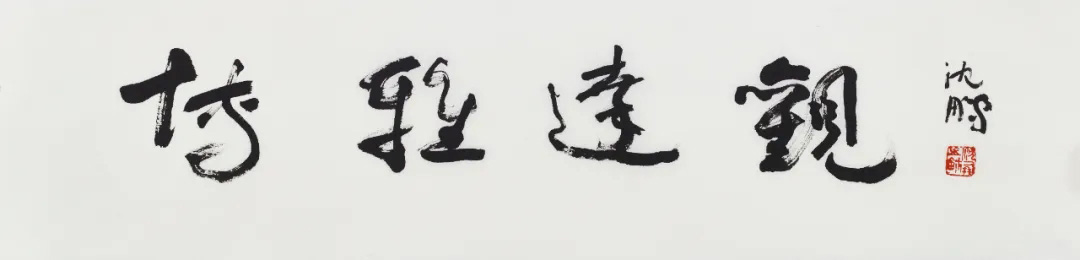 博雅達觀
沈鵬